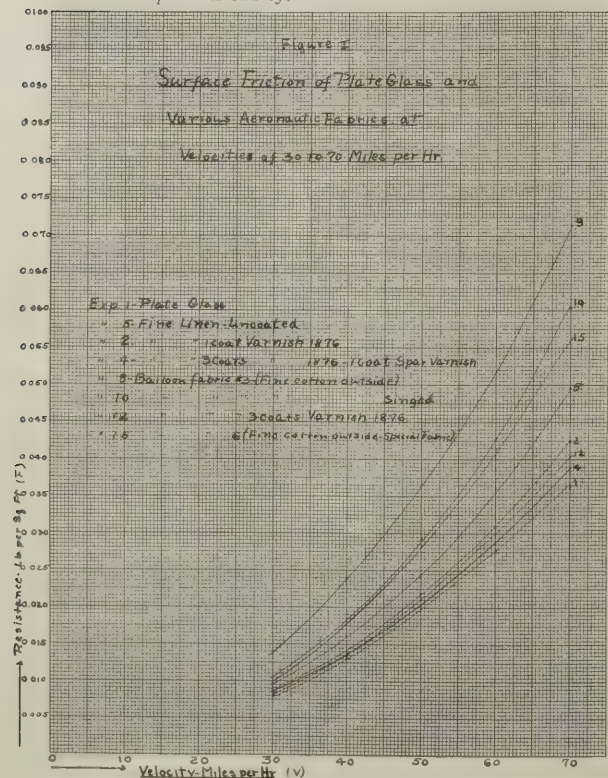 Figure I
Surface Friction of Plate Glass and
Various Aeronautic Fabrics, at
Velocities of 30 to 70 Miles per Hr.
Exp. 1-Plate Glass
" 5-Fine Linen-Uncoated
" 2 " " 1 coat Varnish 1876
" 4- " " 3 Coats " 1876-1 Coat Spar Varnish
Balloon fabric (Fine cotton outside)
" 10 Singed
" 12 " 3 coats Varnish 1876
(Fine cotton outside-Special Fabric)
0.100
0.095
0.090
0.085
0.080
0.075
0.070
0.065
0.060
0.055
0.050
0.045
0.040
0.035
0.030
0.025
0.020
0.015
0.010
0.005
9
10
15
5
2
12
4
1
Resistance-Lb per Sq Ft (F)
0 10 20 30 40 50 60 70
Velocity-Miles per Hr (V)